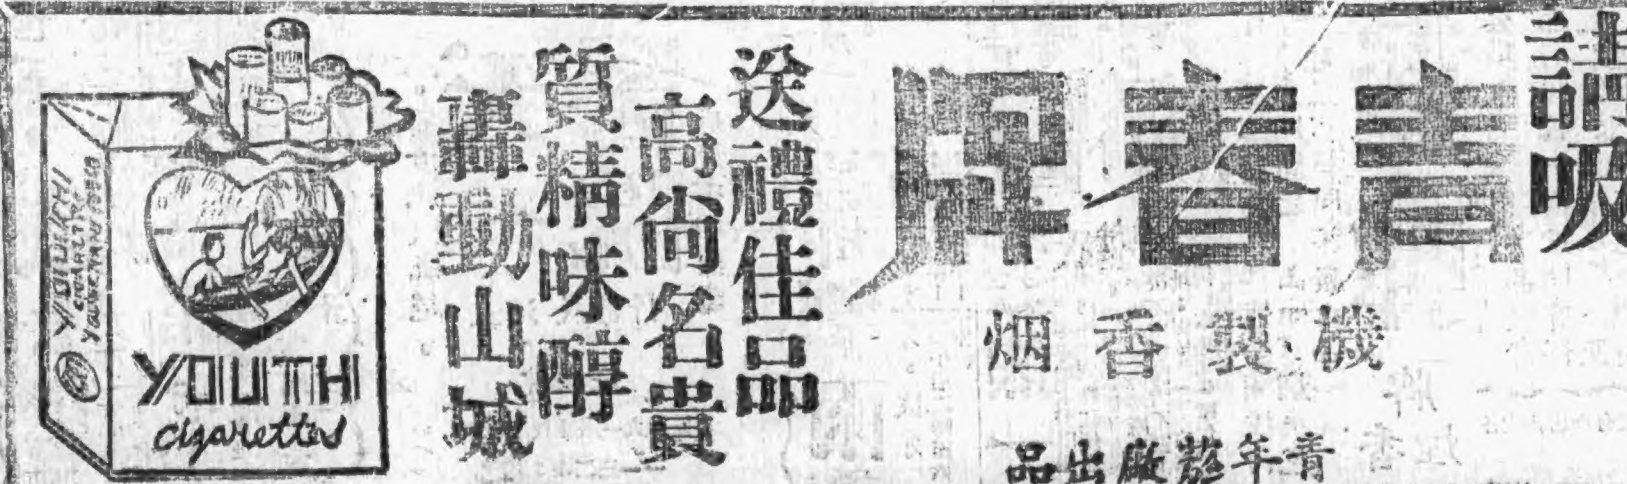 請吸
青春牌
機製香烟
青年菸廠出品
送禮佳品
高尚名貴
質精味醇
轟動山城
YOUTH
cigarettes
YOUTH
QUALITY